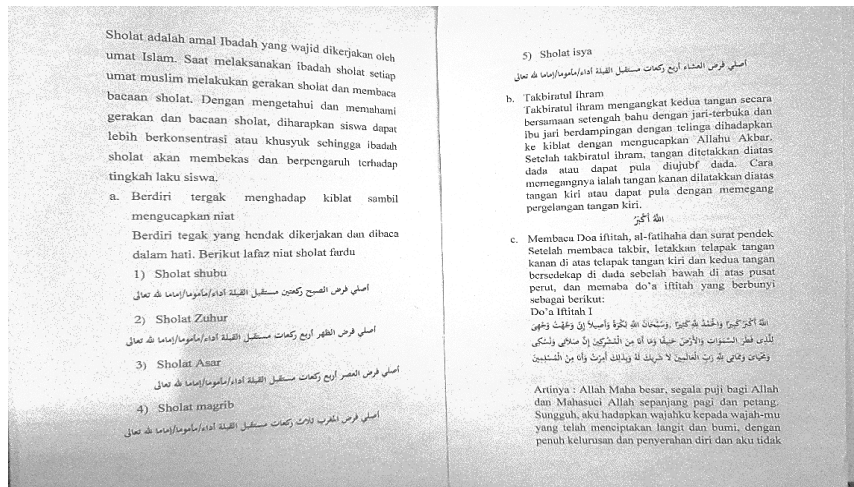 Sholat adalah amal Ibadah yang wajid dikerjakan oleh
umat Islam. Saat melaksanakan ibadah sholat setiap
umat muslim melakukan gerakan sholat dan membaca
bacaan sholat. Dengan mengetahui dan memahami
gerakan dan bacaan sholat, diharapkan siswa dapat
lebih berkonsentrasi atau khusyuk sehingga ibadah
sholat akan membekas dan berpengaruh terhadap
tingkah laku siswa.
a. Berdiri tergak menghadap kiblat sambil
mengucapkan niat
Berdiri tegak yang hendak dikerjakan dan dibaca
dalam hati. Berikut lafaz niat sholat fardu
1) Sholat shubu
أصلي فرض الصبح ركعتين مستقبل القبلة أداء/مأموما/إماما لله تعالى
2) Sholat Zuhur
أصلي فرض الظهر أربع ركعات مستقبل القبلة أداء/مأموما/إماما لله تعالى
3) Sholat Asar
أصلي فرض العصر أربع ركعات مستقبل القبلة أداء/مأموما/إماما لله تعالى
4) Sholat magrib
أصلي فرض المغرب ثلاث ركعات مستقبل القبلة أداء/مأموما/إماما لله تعالى
5) Sholat isya
أصلي فرض العشاء أربع ركعات مستقبل القبلة أداء/مأموما/إماما لله تعالى
b. Takbiratul Ihram
Takbiratul ihram mengangkat kedua tangan secara
bersamaan setengah bahu dengan jari-terbuka dan
ibu jari berdampingan dengan telinga dihadapkan
ke kiblat dengan mengucapkan Allahu Akbar.
Setelah takbiratul ihram, tangan ditetakkan diatas
dada atau dapat pula diujubf dada. Cara
memegangnya ialah tangan kanan dilatakkan diatas
tangan kiri atau dapat pula dengan memegang
pergelangan tangan kiri.
اللهُ أَكْبَرُ
c. Membaca Doa iftitah, al-fatihaha dan surat pendek
Setelah membaca takbir, letakkan telapak tangan
kanan di atas telapak tangan kiri dan kedua tangan
bersedekap di dada sebelah bawah di atas pusat
perut, dan memaba do'a iftitah yang berbunyi
sebagai berikut:
Do'a Iftitah I
اللهُ أَكْبَرُ كَبِيرًا وَالْحَمْدُ لِلَّهِ كَثِيرًا وَسُبْحَانَ اللهِ بُكْرَةً وَأَصِيلًا إِنِّي وَجَّهْتُ وَجْهِيَ
لِلَّذِي فَطَرَ السَّمَوَاتِ وَالْأَرْضَ حَنِيفًا وَمَا أَنَا مِنَ الْمُشْرِكِينَ إِنَّ صَلَاتِي وَنُسُكِي
وَمَحْيَايَ وَمَمَاتِي لِلَّهِ رَبِّ الْعَالَمِينَ لَا شَرِيكَ لَهُ وَبِذَلِكَ أُمِرْتُ وَأَنَا مِنَ الْمُسْلِمِينَ
Artinya : Allah Maha besar, segala puji bagi Allah
dan Mahasuci Allah sepanjang pagi dan petang.
Sungguh, aku hadapkan wajahku kepada wajah-mu
yang telah menciptakan langit dan bumi, dengan
penuh kelurusan dan penyerahan diri dan aku tidak